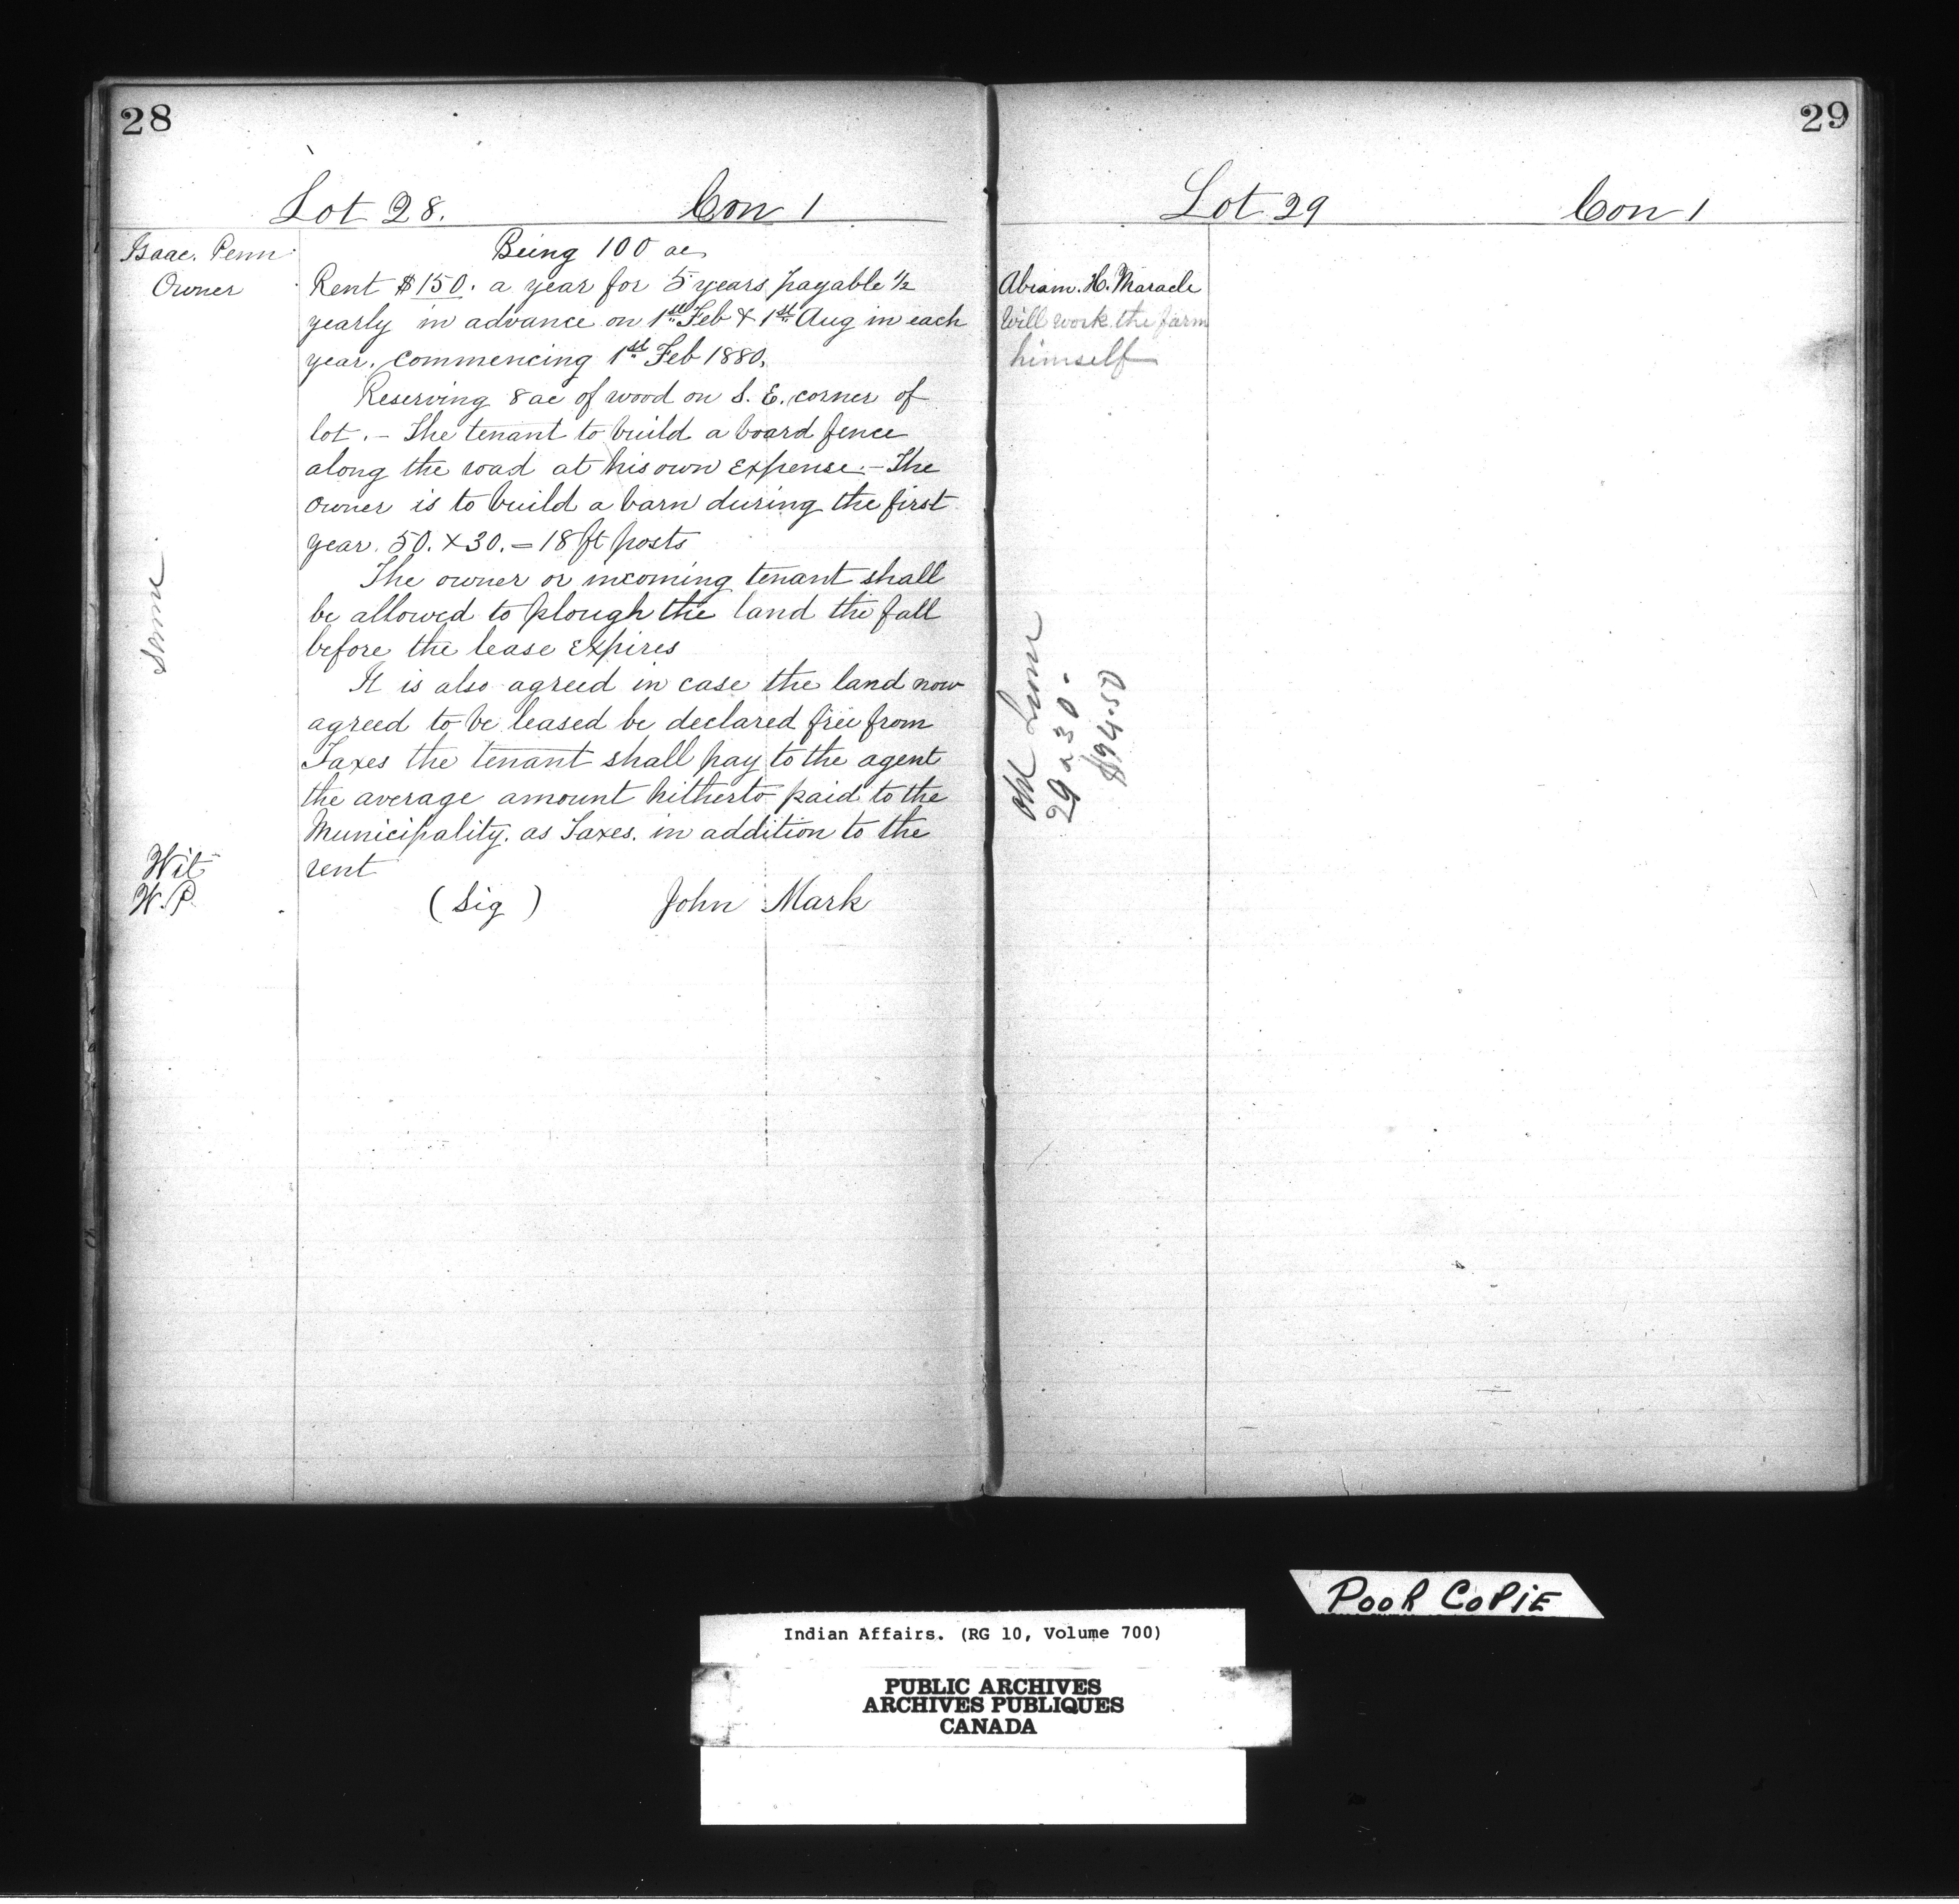 28
Lot 28. Con 1
Isaac. Penn
Owner
Being 100 ac
Rent $150. a year for 5 years, payable ½
yearly in advance on 1st Feb & 1st Aug in each
year. commencing 1st Feb 1880.
Reserving 8 ac of wood on S. E. corner of
lot. - The tenant to build a board fence
along the road at his own expense. - The
owner is to build a barn during the first
year. 50. x 30. = 18 ft posts
The owner or incoming tenant shall
be allowed to plough the land the fall
before the lease expires
It is also agreed in case the land now
agreed to be leased be declared free from
Taxes the tenant shall pay to the agent
the average amount hitherto paid to the
Municipality. as Taxes. in addition to the
rent
Same
Wit
W. P.
(Sig) John Mark
29
Lot 29 Con 1
Abram. H. Maracle
Will work the farm
himself
Old
29 a 30.
$94.50
POOR COPIE
Indian Affairs. (RG 10, Volume 700)
PUBLIC ARCHIVES
ARCHIVES PUBLIQUES
CANADA